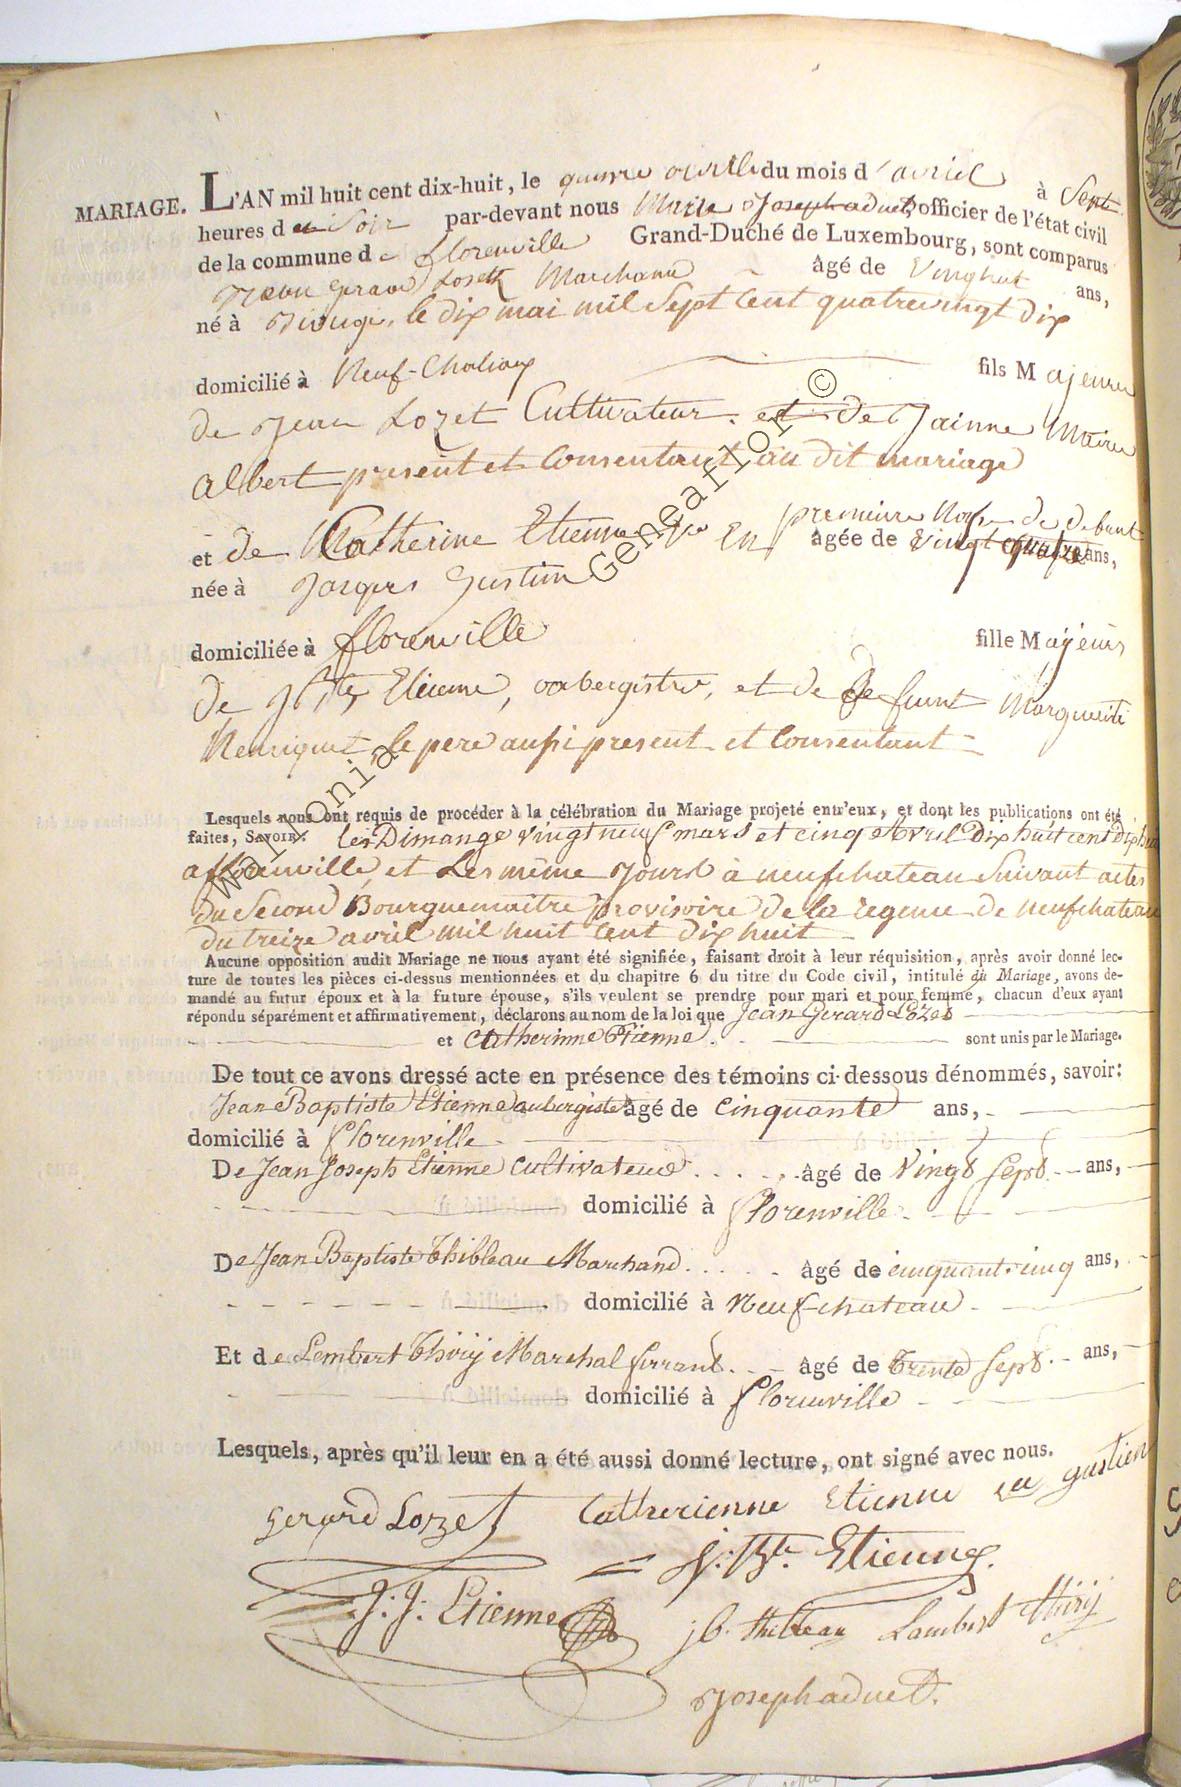 MARIAGE. L'AN mil huit cent dix-huit, le du mois d'avriel à Sept
heures du Soir par-devant nous Marie Josephaduet, officier de l'état civil
de la commune de florenville Grand-Duché de Luxembourg, sont comparus
Jean Gerard Lozet Marchand âgé de Vingt huit ans,
né à le dix mai mil Sept Cent quatrevingt dix
domicilié à Neuf-Chateau fils Majeure
de Jean Lozet Cultivateur et de Jainne Marie
albert présent et Consentant au dit mariage
et de Catherine Etienne En premiere de defunt âgée de Vingt quatre ans,
née à Jacques Gustin
domiciliée à florenville fille Majeure
de J Bte Etienne, aubergiste, et de Defunt Marguerite
Henriquet, le pere aussi present et Consentant
Lesquels nous ont requis de procéder à la célébration du Mariage projeté entr'eux, et dont les publications ont été
faites, SAVOIR: les Dimange vingt neuf mars et cinq avril Dix huit cent dix huit
a florenville et Les même Jours à neufchateau Suivant actes
du Second Bourguemaitre provisoire de la regence de neufchateau
du treize avril mil huit Cent dix huit
Aucune opposition audit Mariage ne nous ayant été signifiée, faisant droit à leur réquisition, après avoir donné lec-
ture de toutes les pièces ci-dessus mentionnées et du chapitre 6 du titre du Code civil, intitulé du Mariage, avons de-
mandé au futur époux et à la future épouse, s'ils veulent se prendre pour mari et pour femme, chacun d'eux ayant
répondu séparément et affirmativement, déclarons au nom de la loi que Jean Gerard Lozet
et Catherinne Etienne. sont unis par le Mariage.
De tout ce avons dressé acte en présence des témoins ci-dessous dénommés, savoir:
Jean Baptiste Etienne aubergiste âgé de Cinquante ans,
domicilié à florenville
De Jean Joseph Etienne Cultivateur âgé de Vingt sept ans,
domicilié à florenville
De Jean Baptiste Thibleau Marchand âgé de cinquante cinq ans,
domicilié à Neufchateau
Et de Lembert Thiry Marechal ferrant âgé de Trente sept ans,
domicilié à florenville
Lesquels, après qu'il leur en a été aussi donné lecture, ont signé avec nous.
Gerard Lozet Catherienne Etienne gustien
J: Bte. Etienne.
J: J: Etienne
jb. thibleau Lambert thiry
Josephaduet.
Wallonia Geneaflor ©